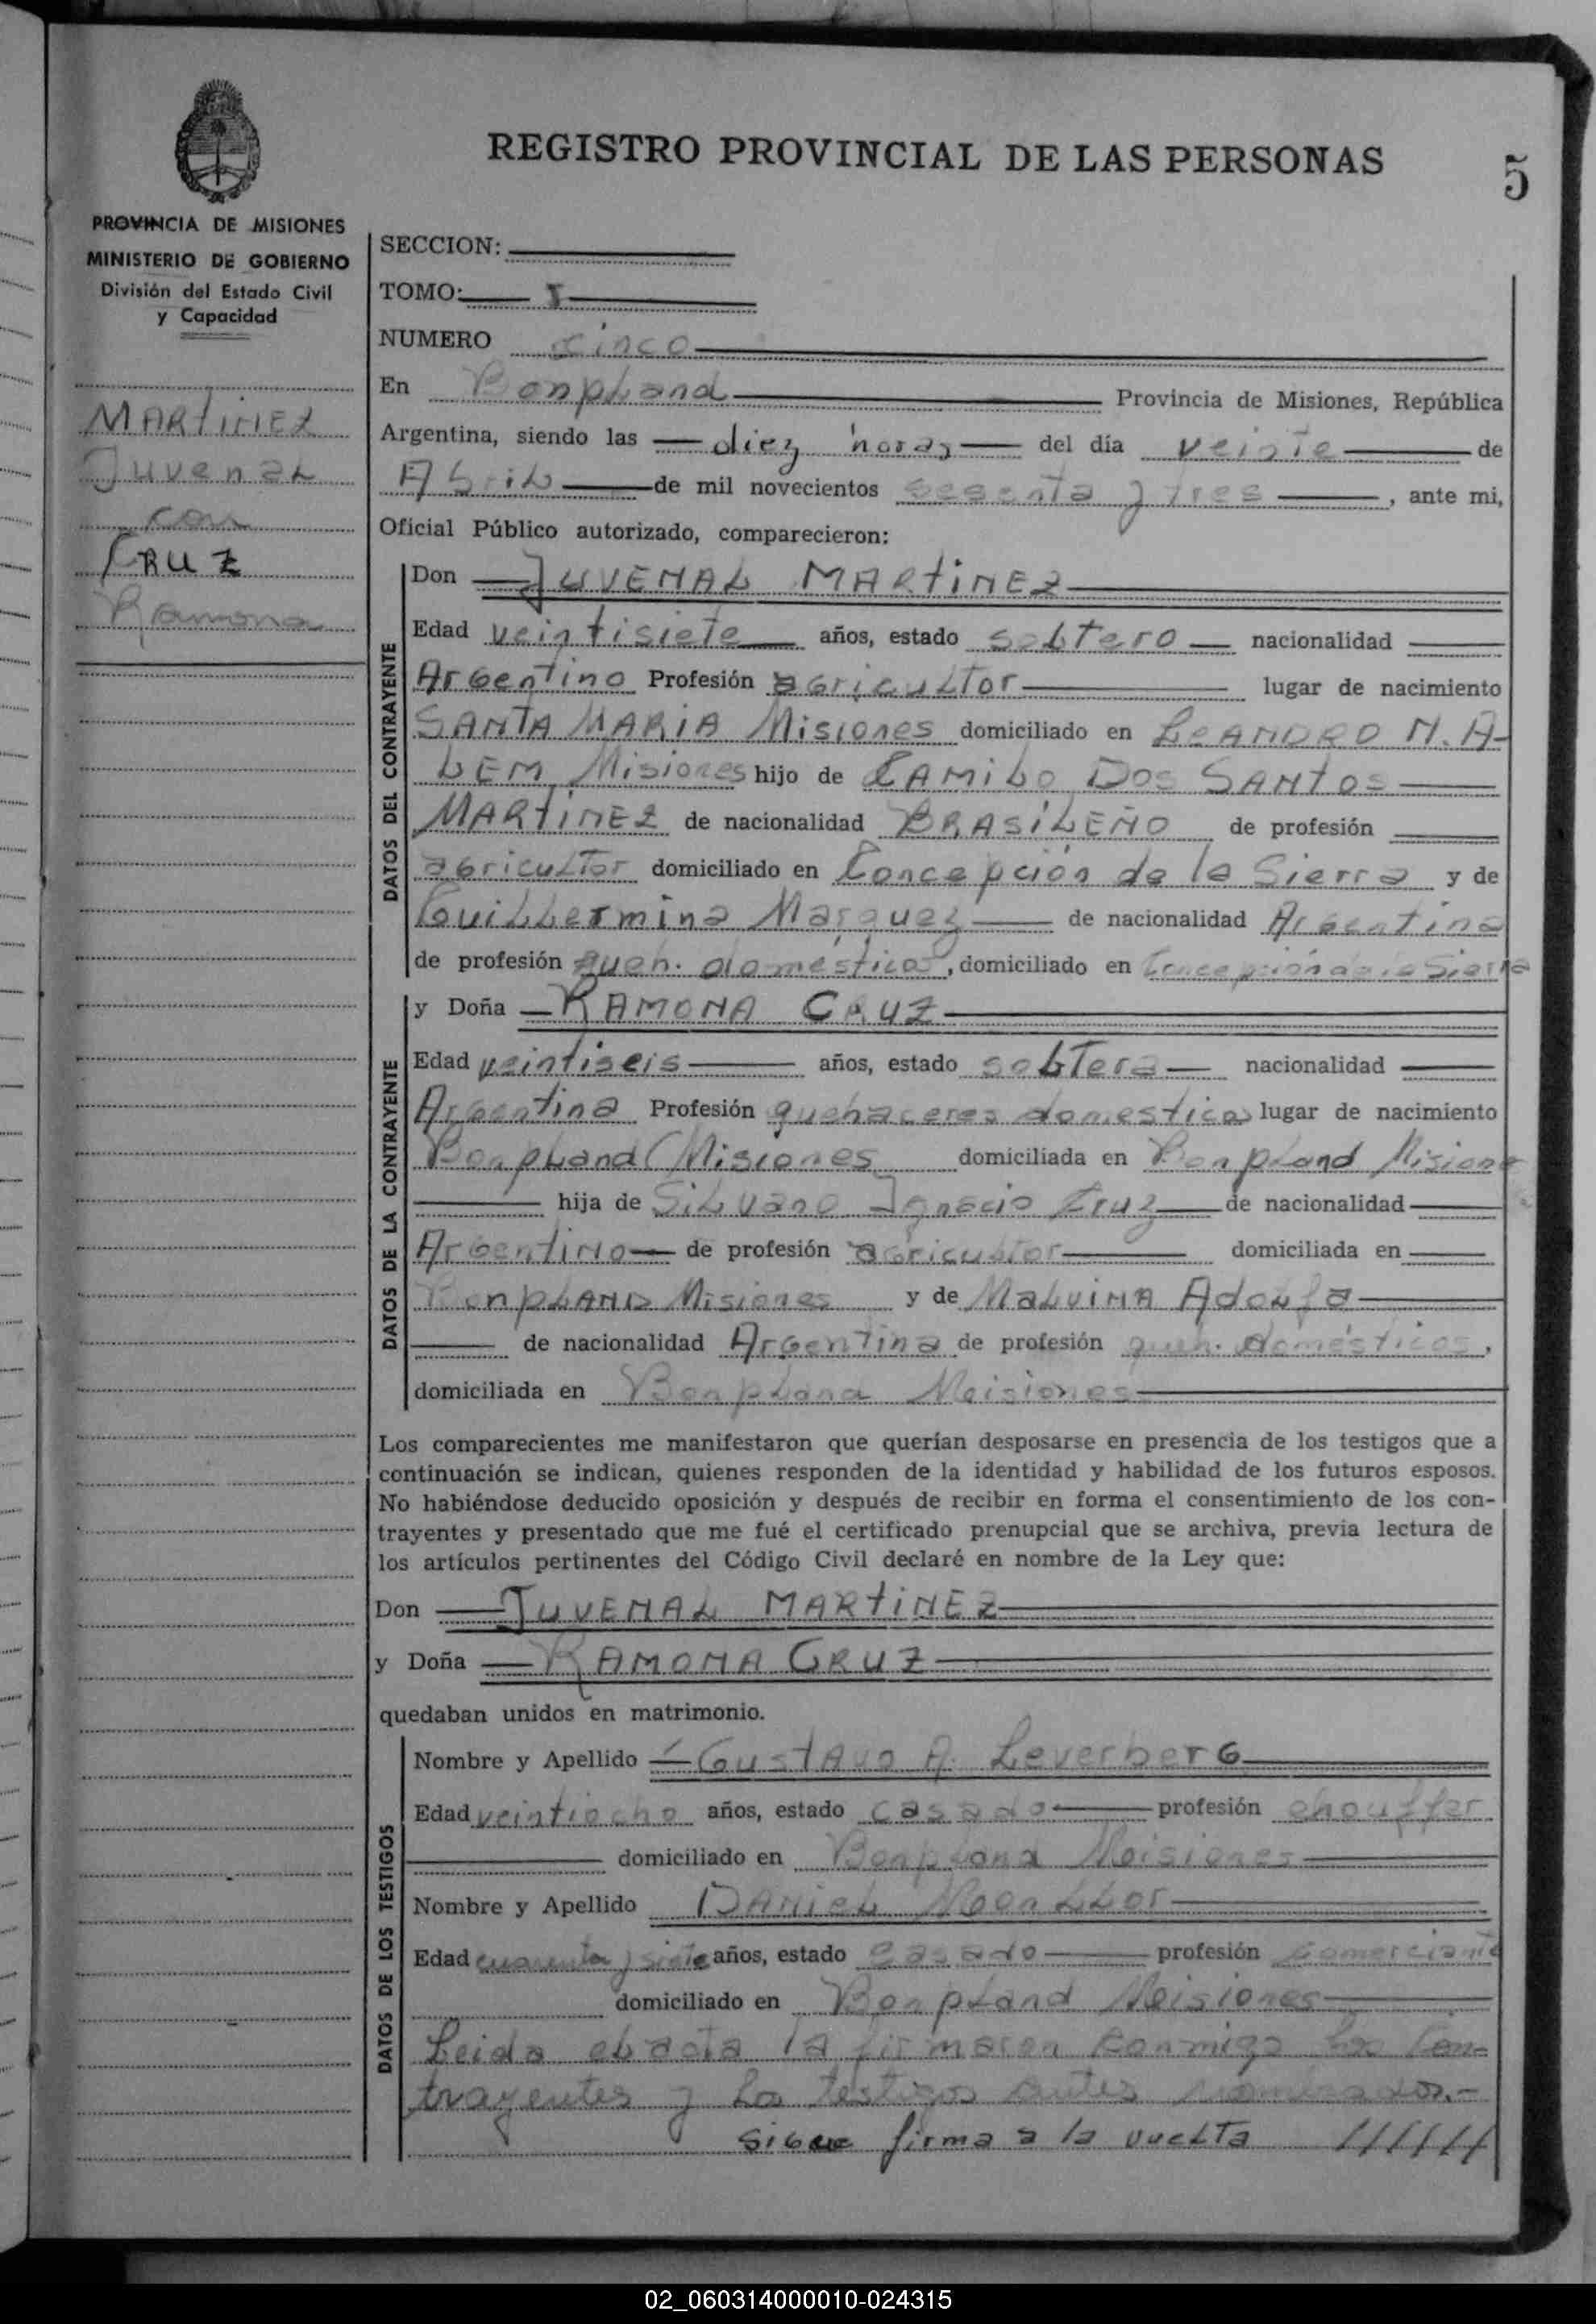 REGISTRO PROVINCIAL DE LAS PERSONAS
5
PROVINCIA DE MISIONES
MINISTERIO DE GOBIERNO
División del Estado Civil
y Capacidad
MARTINEZ
Juvenal
con
CRUZ
Ramona
SECCION:
TOMO: I
NUMERO cinco
En Bonpland Provincia de Misiones, República
Argentina, siendo las diez horas del día veinte de
Abril de mil novecientos sesenta y tres, ante mi,
Oficial Público autorizado, comparecieron:
DATOS DEL CONTRAYENTE
Don JUVENAL MARTINEZ
Edad veintisiete años, estado soltero nacionalidad
Argentino Profesión agricultor lugar de nacimiento
SANTA MARIA Misiones domiciliado en LEANDRO N. A-
LEM Misiones hijo de CAMILO DOS SANTOS
MARTINEZ de nacionalidad BRASILEÑO de profesión
agricultor domiciliado en Concepción de la Sierra y de
Guillermina Marquez de nacionalidad Argentina
de profesión queh. domésticos, domiciliado en Concepción de la Sierra
DATOS DE LA CONTRAYENTE
y Doña RAMONA CRUZ
Edad veintiseis años, estado soltera nacionalidad
Argentina Profesión quehaceres domesticos lugar de nacimiento
Bonpland (Misiones domiciliada en Bonpland Misiones
hija de Silvano Ignacio Cruz de nacionalidad
Argentino de profesión agricultor domiciliada en
BonpLAND Misiones y de Malvina Adolfa
de nacionalidad Argentina de profesión queh. domésticos,
domiciliada en Bonpland Misiones
Los comparecientes me manifestaron que querían desposarse en presencia de los testigos que a
continuación se indican, quienes responden de la identidad y habilidad de los futuros esposos.
No habiéndose deducido oposición y después de recibir en forma el consentimiento de los con-
trayentes y presentado que me fué el certificado prenupcial que se archiva, previa lectura de
los artículos pertinentes del Código Civil declaré en nombre de la Ley que:
Don JUVENAL MARTINEZ
y Doña RAMONA CRUZ
quedaban unidos en matrimonio.
DATOS DE LOS TESTIGOS
Nombre y Apellido Gustavo A. Leverberg
Edad veintiocho años, estado casado profesión chouffer
domiciliado en Bonpland Misiones
Nombre y Apellido Daniel
Edad cuarenta y siete años, estado casado profesión comerciante
domiciliado en Bonpland Misiones
Leida el acta la firmaron conmigo los con-
trayentes y los testigos antes nombrados.-
Sigue firma a la vuelta //////
02_060314000010-024315